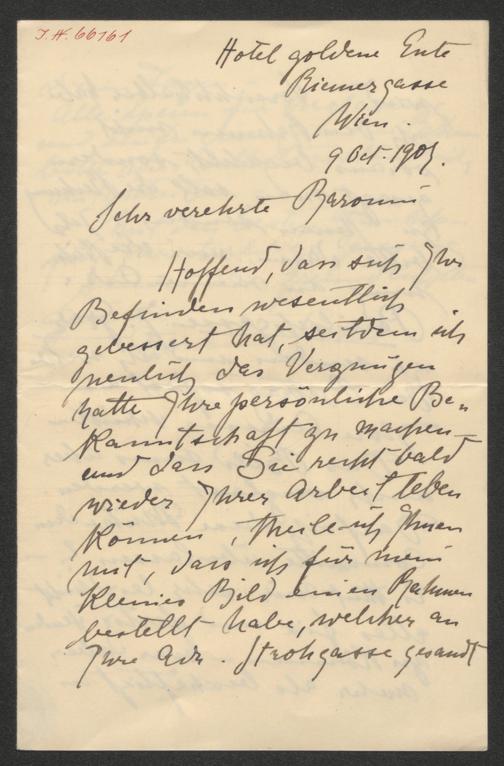 J.N. 66161
Hotel goldene Ente
Riemergasse
Wien.
9 Oct. 1905.
Sehr verehrte Baronin
Hoffend, dass sich Ihr
Befinden wesentlich
gebessert hat, seitdem ich
neulich das Vergnügen
hatte Ihre persönliche Be-
kanntschaft zu machen –
und dass Sie recht bald
wieder Ihrer Arbeit leben
können, theile ich Ihnen
mit, dass ich für mein
kleines Bild einen Rahmen
bestellt habe, welcher an
Ihre Adr. Strohgasse gesandt